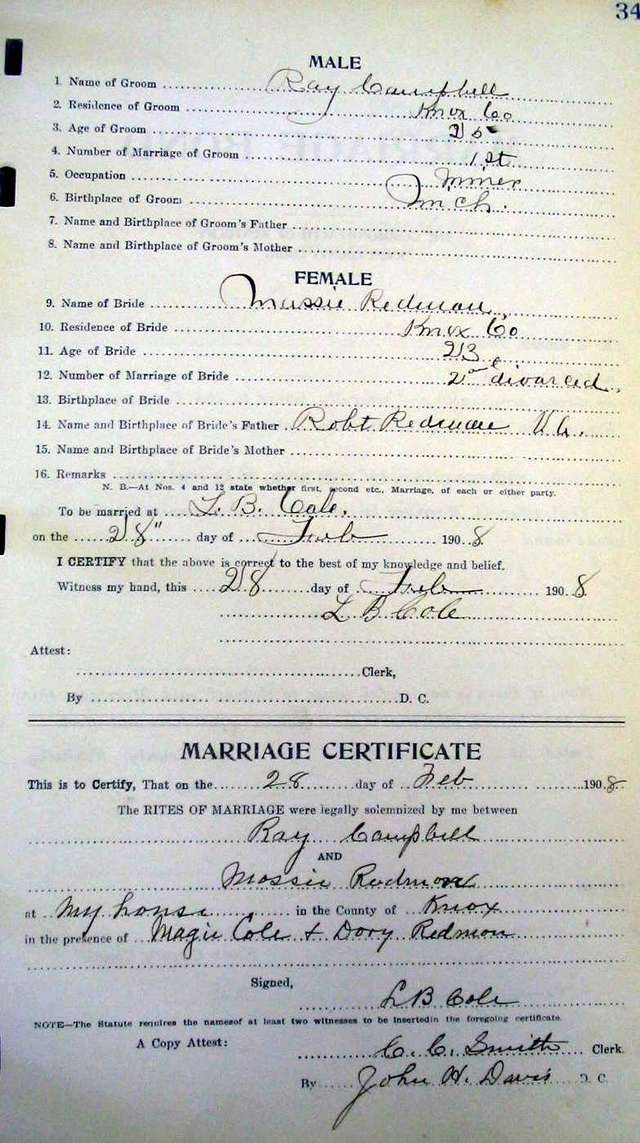 34
MALE
1. Name of Groom Ray Campbell
2. Residence of Groom Knox Co
3. Age of Groom 25
4. Number of Marriage of Groom 1st
5. Occupation Miner
6. Birthplace of Groom Mich.
7. Name and Birthplace of Groom's Father
8. Name and Birthplace of Groom's Mother
FEMALE
9. Name of Bride Mossie Redmon
10. Residence of Bride Knox Co
11. Age of Bride 23
12. Number of Marriage of Bride 2nd divorced
13. Birthplace of Bride
14. Name and Birthplace of Bride's Father Robt Redmon
15. Name and Birthplace of Bride's Mother
16. Remarks
N. B.—At Nos. 4 and 12 state whether first, second etc., Marriage, of each or either party.
To be married at L. B. Cole.
on the 28" day of Feb 1908
I CERTIFY that the above is correct to the best of my knowledge and belief.
Witness my hand, this 28 day of Feb 1908
L B Cole
Attest:
Clerk,
By D. C.
MARRIAGE CERTIFICATE
This is to Certify, That on the 28 day of Feb 1908
The RITES OF MARRIAGE were legally solemnized by me between
Ray Campbell
AND
Mossie Redmon
at My house in the County of Knox
in the presence of Magie Cole + Dory Redmon
Signed,
L B Cole
NOTE—The Statute requires the namesof at least two witnesses to be insertedin the foregoing certificate.
A Copy Attest: C. C. Smith Clerk.
By John H. Davis D. C.